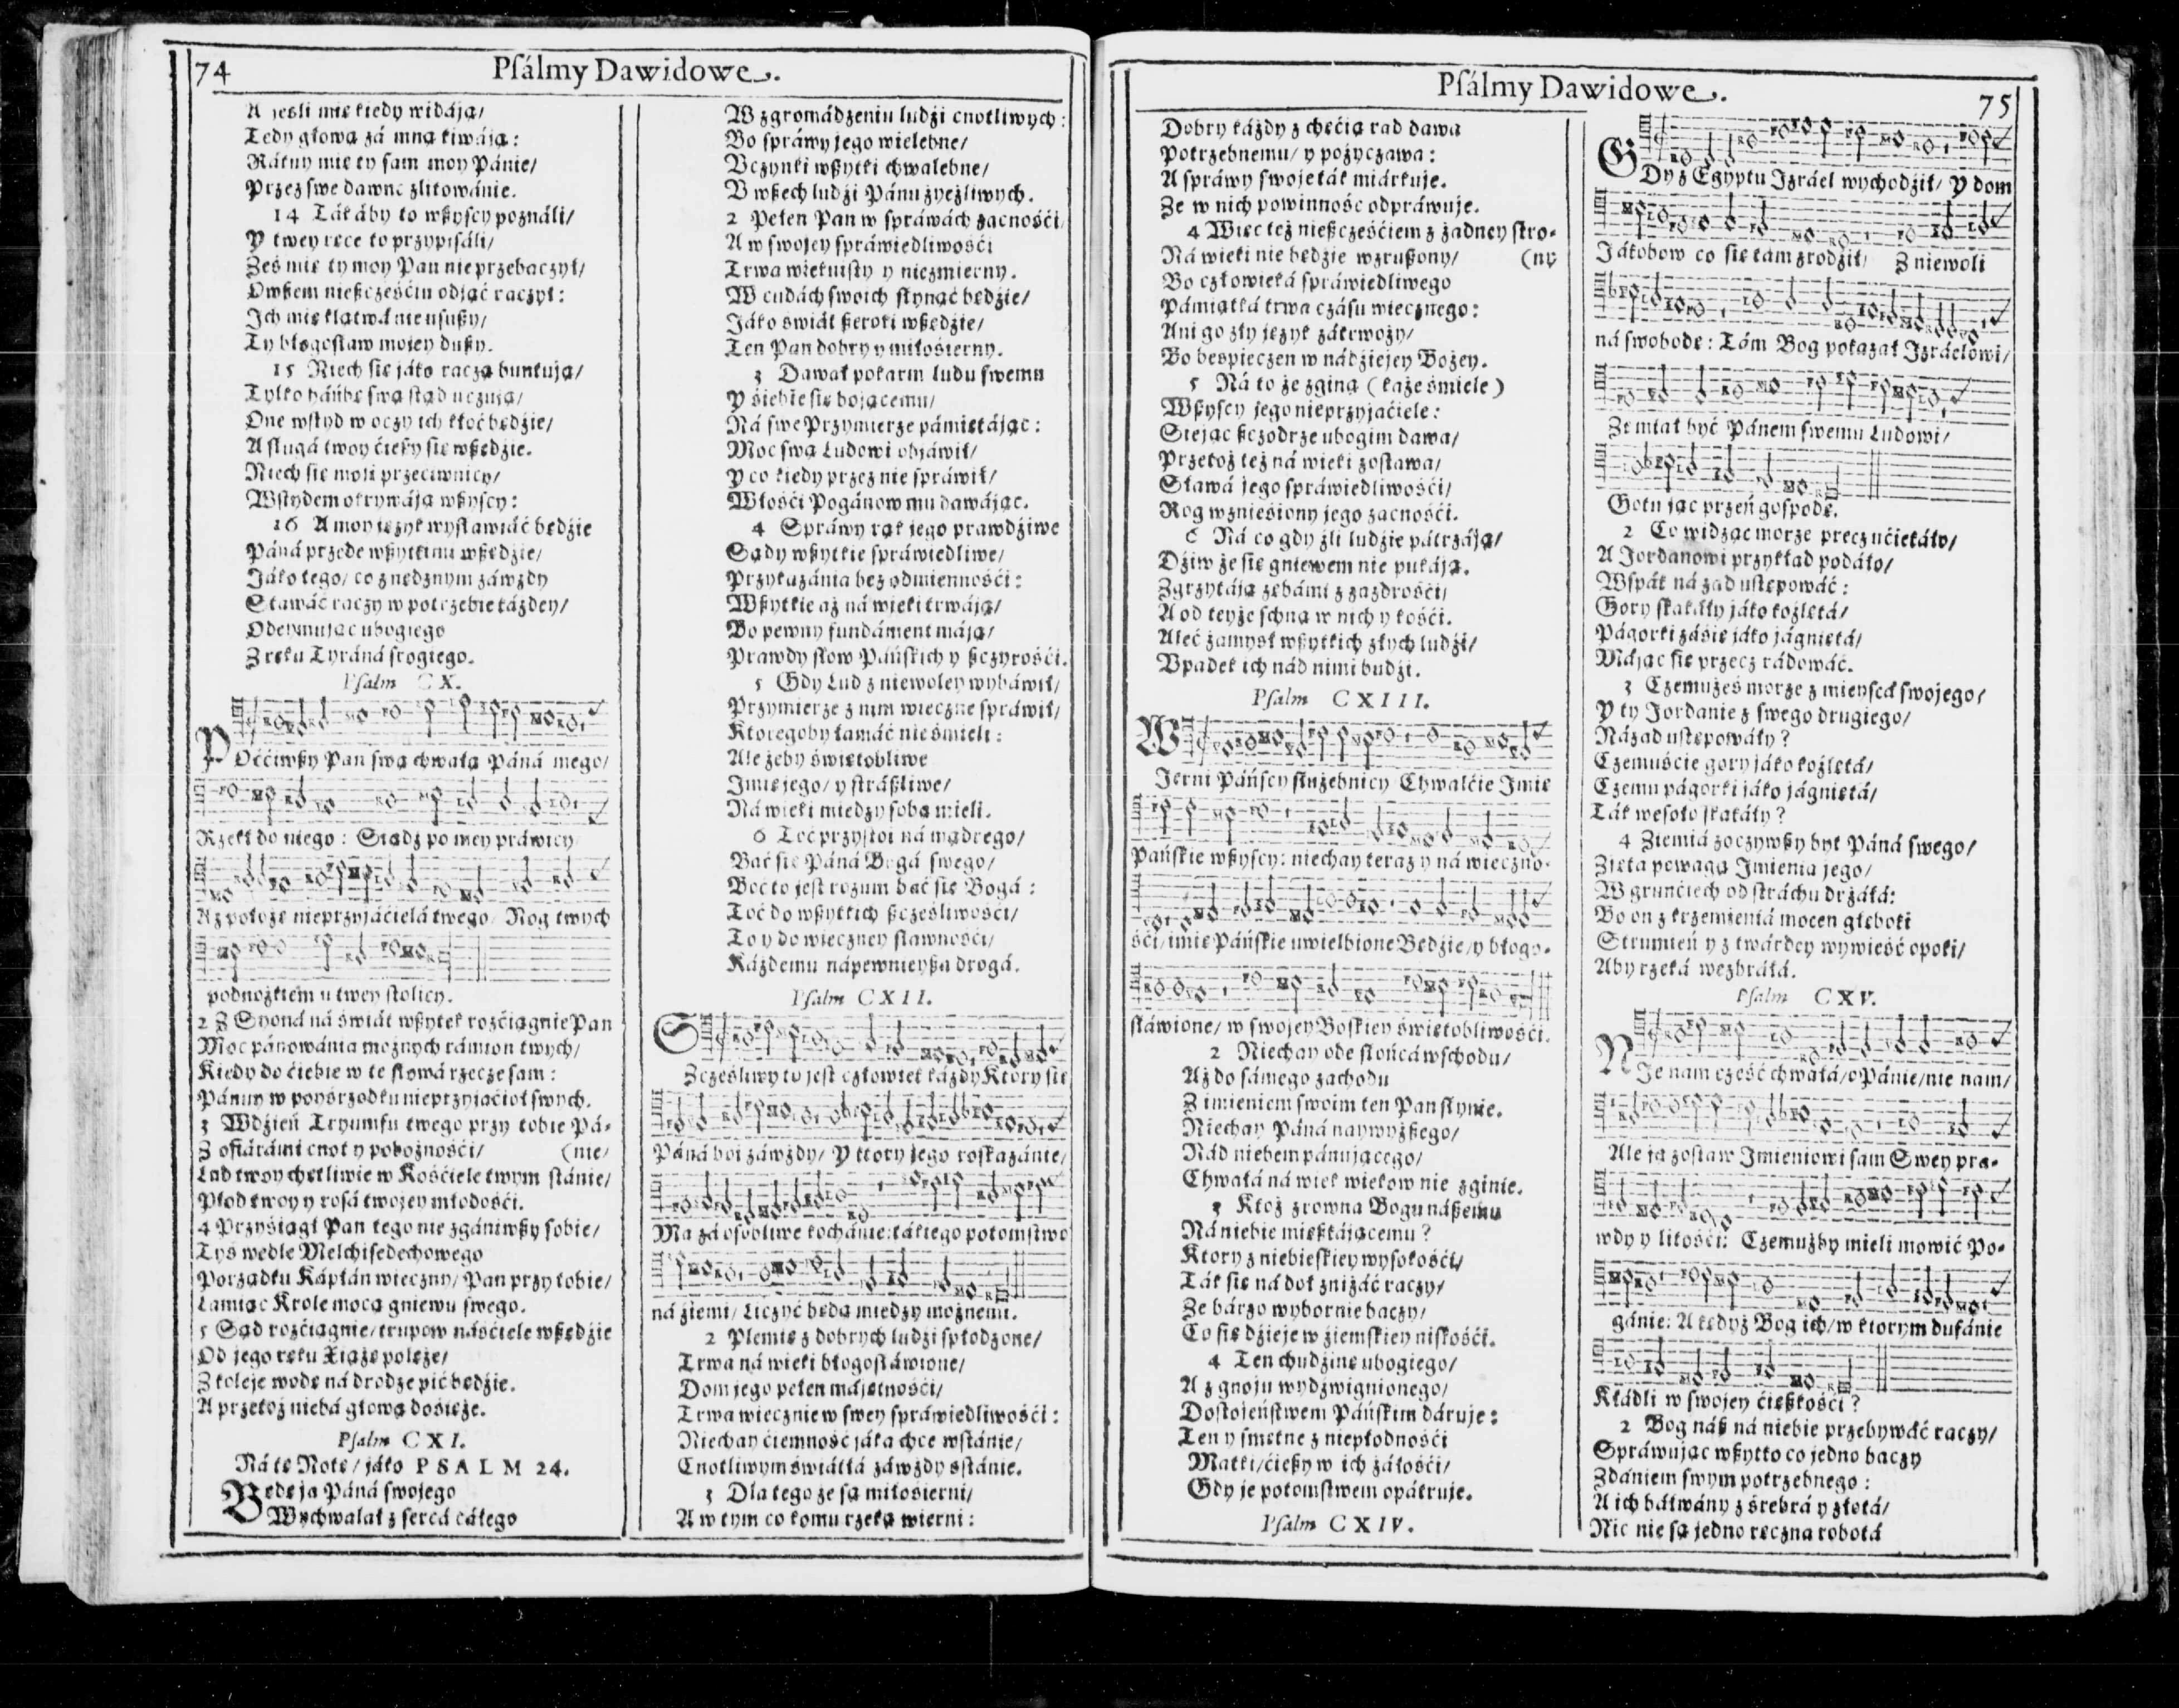 74
Psálmy Dawidowe.
A jesli mię kiedy widáją/
Tedy głową zá mną kiwáją:
Rátuy mię ty sam moy Pánie/
Przez swe dawne zlitowánie.
14 Ták áby to wßyscy poználi/
Y twey ręce to przypisáli/
Żeś mię ty moy Pan nie przebaczył/
Owßem nießczęśćiu odjąć raczył:
Ich mię klątwá nie ususzy/
Ty błogosław mojey dußy.
15 Niech się jáko raczą buntują/
Tylko háńbę swą stąd uczują/
One wstyd w oczy ich kłoć będźie/
A sługá twoy ćießy się wßędźie.
Niech się moji przeciwnicy/
Wstydem okrywáją wßyscy:
16 A moy język wysławiáć będźie
Páná przede wßytkimi wßędźie/
Jáko tego/ co z nędznym záwzdy
Stawáć raczy w potrzebie káżdey/
Odeymując ubogiego
Z ręku Tyráná srogiego.
Psalm CX.
POććiwßy Pan swą chwałą Páná mego/
Rzekł do niego: Siądź po mey práwicy
Aż położę nieprzyjáćielá twego Nog twych
podnożkiem u twey stolicy.
2 Z Syoná ná świát wßytek rozćiągnie Pan
Moc pánowánia możnych rámion twych/
Kiedy do ćiebie w te słowá rzecze sam:
Pánuy w poysrzodku nieprzyjaćioł swych.
3 W dźień Tryumfu twego przy tobie Pá-
Z ofiárámi cnot y pobożnośći/ (nie/
Lud twoy chętliwie w Kośćiele twym stánie/
Płod twoy y rosá twojey młodośći.
4 Przyśiągł Pan tego nie zgániwßy sobie/
Tyś wedle Melchisedechowego
Porządku Kápłán wieczny/ Pan przy tobie/
Łamiąc Krole mocą gniewu swego.
5 Sąd rozćiągnie/ trupow náśćiele wßędźie
Od jego ręku Xiążę polęże/
Z koleje wodę ná drodze pić będźie.
A przetoż niebá głową dośięże.
Psalm CXI.
Ná tę Notę/ jáko PSALM 24.
BEdę ja Páná swojego
Wychwalał z sercá cáłego
W zgromádzeniu ludźi cnotliwych:
Bo spráwy jego wielebne/
Vczynki wßytki chwalebne/
V wßech ludźi Pánu życzliwych.
2 Pełen Pan w spráwách zacnośći/
A w swojey spráwiedliwośći
Trwa wiekuisty y niezmierny.
W cudách swoich słynąć będźie/
Jáko świát ßeroki wßędźie/
Ten Pan dobry y miłośierny.
3 Dawał pokarm ludu swemu
Y śiebie się bojącemu/
Ná swe Przymierze pámiętájąc:
Moc swą Ludowi objáwił/
Y co kiedy przez nie spráwił/
Włośći Pogánow mu dawájąc.
4 Spráwy rąk jego prawdźiwe
Sądy wßytkie spráwiedliwe/
Przykazánia bez odmiennośći:
Wßytkie aż ná wieki trwáją/
Bo pewny fundáment máją/
Prawdy słow Páńskich y ßczyrośći.
5 Gdy Lud z niewoley wybáwił/
Przymierze z nim wieczne spráwił/
Ktoregoby łamáć nie śmieli:
Ale żeby świętobliwe
Imię jego/ y stráßliwe/
Ná wieki między sobą mieli.
6 Toć przystoi ná mądrego/
Bać się Páná Bogá swego/
Boć to jest rozum bać się Bogá:
Toć do wßytkich ßczęśliwośći/
To y do wieczney sławnośći/
Káżdemu napewnieyßa drogá.
Psalm CXII.
SZczęśliwy to jest człowiek káżdy Ktory się
Páná boi záwzdy/ Y ktory jego roskazánie/
Ma zá osobliwe kochánie: tákiego potomstwo
ná źiemi/ Liczyć będą między możnemi.
2 Plemię z dobrych ludźi spłodzone/
Trwa ná wieki błogosłáwione/
Dom jego pełen májętnośći/
Trwa wiecznie w swey spráwiedliwośći:
Niechay ćiemność jáka chce wstánie/
Cnotliwym świátłá záwżdy sstánie.
3 Dla tego że są miłośierni/
A w tym co komu rzeką wierni:
Psálmy Dawidowe.
75
Dobry káżdy z chęćią rad dawa
Potrzebnemu/ y pożyczawa:
A spráwy swoje ták miárkuje.
Że w nich powinność odpráwuje.
4 Więc też nießczęśćiem z żadney stro-
Ná wieki nie będźie wzrußony/ (ny
Bo człowieká spráwiedliwego
Pámiątká trwa czásu wiecznego:
Ani go zły język zátrwoży/
Bo bespieczen w nádźiejey Bożey.
5 Ná to że zginą (każe śmiele)
Wßyscy jego nieprzyjaćiele:
Siejąc ßczodrze ubogim dawa/
Przetoż też ná wieki zostawa/
Sławá jego spráwiedliwośći/
Rog wznieśiony jego zacnośći.
6 Ná co gdy źli ludźie pátrzáją/
Dźiw że się gniewem nie pukáją.
Zgrzytáją zębámi z zazdrośći/
A od teyże schną w nich y kośći.
Aleć zamysł wßytkich złych ludźi/
Vpadek ich nád nimi budźi.
Psalm CXIII.
WIerni Páńscy służebnicy Chwalćie Imię
Páńskie wßyscy: niechay teraz y ná wieczno-
śći/ imię Páńskie uwielbione Będźie/ y błogo-
sławione/ w swojey Boskiey świętobliwośći.
2 Niechay ode słońcá wschodu/
Aż do sámego zachodu
Z imieniem swoim ten Pan słynie.
Niechay Páná naywyżßego/
Nád niebem pánującego/
Chwałá ná wiek wiekow nie zginie.
3 Ktoż zrowna Bogu náßemu
Ná niebie mießkájącemu?
Ktory z niebieskiey wysokośći/
Ták się ná doł zniżáć raczy/
Że bárzo wybornie baczy/
Co się dźieje w źiemskiey niskośći.
4 Ten chudźinę ubogiego/
A z gnoju wydźwignionego/
Dostojeństwem Páńskim dáruje:
Ten y smętne z niepłodnośći
Matki/ ćießy w ich żáłośći/
Gdy je potomstwem opátruje.
Psalm CXIV.
GDy z Egyptu Izráel wychodźił/ Y dom
Jákobow co się tám zrodźił/ Z niewoli
ná swobodę: Tám Bog pokazał Izráelowi/
Że miał być Pánem swemu Ludowi/
Gotując przeń gospodę.
2 Co widząc morze precz ućiekáło/
A Jordanowi przykład podáło/
Wspák ná zad ustępowáć:
Gory skakáły jáko koźlętá/
Págorki zásię jáko jágniętá/
Májąc się przecz rádowáć.
3 Czemużeś morze z mieyscá swojego/
Y ty Jordanie z swego drugiego/
Názad ustępowáły?
Czemuśćie gory jáko koźlętá/
Czemu págorki jáko jágniętá/
Ták wesoło skakáły?
4 Ziemiá zoczywßy być Páná swego/
Zjęta powagą Imienia jego/
W grunćiech od stráchu drżáłá:
Bo on z krzemieniá mocen głęboki
Strumień y z twárdey wywieść opoki/
Aby rzeká wezbráłá.
Psalm CXV.
NIe nam cześć chwałá/ o Pánie/ nie nam/
Ale ją zostaw Imieniowi sam Swey pra-
wdy y litośći: Czemużby mieli mowić Po-
gánie: A kędyż Bog ich/ w ktorym dufánie
Kłádli w swojey ćięßkośći?
2 Bog náß ná niebie przebywáć raczy/
Spráwując wßytko co jedno baczy
Zdániem swym potrzebnego:
A ich báłwány z śrebrá y złotá/
Nic nie są jedno ręczna robotá